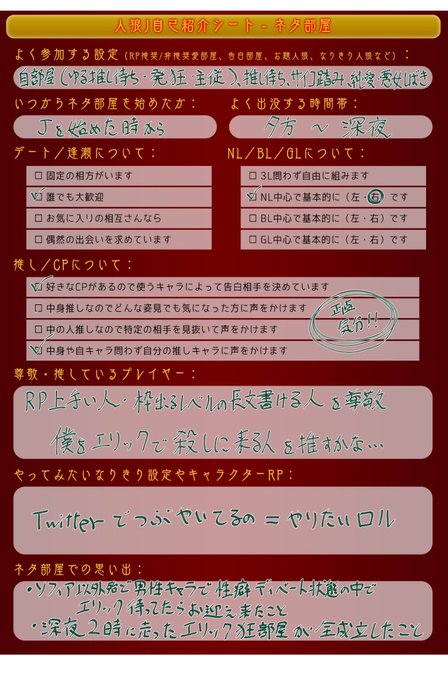 人狼J自己紹介シート - ネタ部屋
よく参加する設定（RP推奨/非推奨愛部屋、告白部屋、お題人狼、なりきり人狼など）：
自部屋（ゆる推し待ち・発狂・主従）、推し待ち、サイコ踏み、乱交・悪女しばき
いつからネタ部屋を始めたか：
よく出没する時間帯：
Jを始めた時から
夕方 〜 深夜
デート/逢瀬について：
NL/BL/GLについて：
固定の相方がいます
3L問わず自由に組みます
誰でも大歓迎
NL中心で基本的に（左・右）です
お気に入りの相互さんなら
BL中心で基本的に（左・右）です
偶然の出会いを求めています
GL中心で基本的に（左・右）です
推し/CPについて：
好きなCPがあるので使うキャラによって告白相手を決めています
中身推しなのでどんな姿見でも気になった方に声をかけます
中の人推しなので特定の相手を見抜いて声をかけます
中身や自キャラ問わず自分の推しキャラに声をかけます
正直
気分!!
尊敬・推しているプレイヤー：
RP上手い人・枠出るレベルの長文書ける人を尊敬
僕をエリックで殺しに来る人を推すかな…
やってみたいなりきり設定やキャラクターRP：
Twitterでつぶやいてるの = やりたいロル
ネタ部屋での思い出：
・ソフィア以外全て男性キャラで性癖ディベート状態の中で
エリック待ってたらお迎え来たこと
・深夜2時に走ったエリック狂部屋が全成立したこと